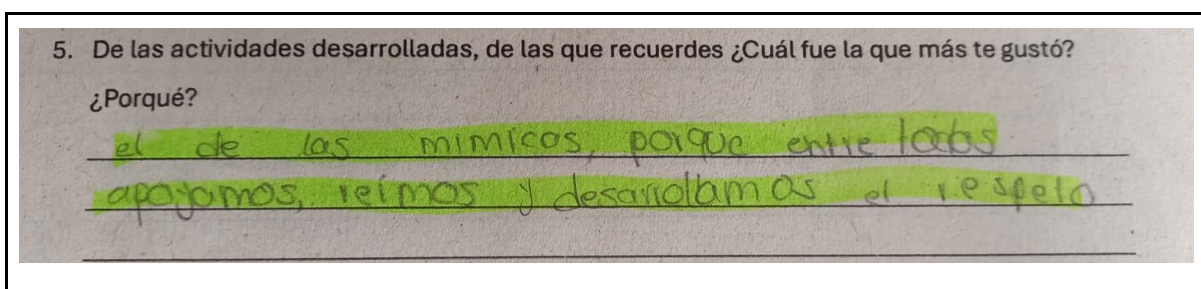 5. De las actividades desarrolladas, de las que recuerdes ¿Cuál fue la que más te gustó?
¿Porqué?
el de las mimicas, porque entre todos
apoyamos, reímos y desarrollamos el respeto